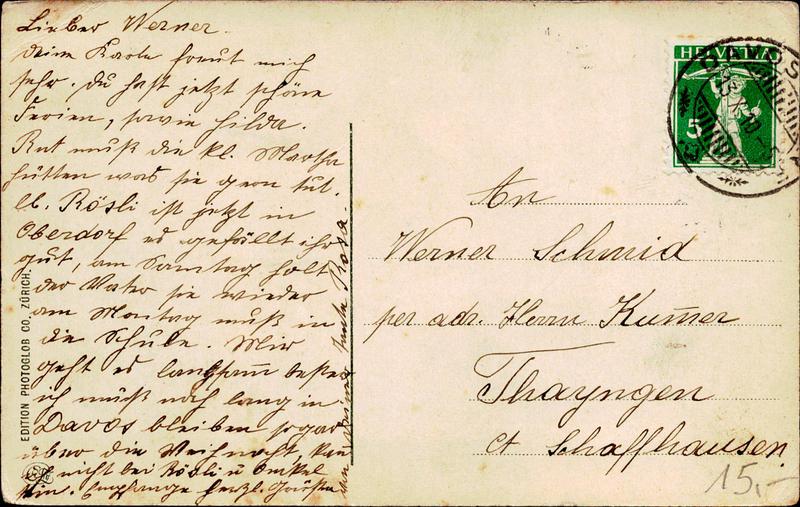 Lieber Werner.
Deine Karte freut mich
sehr. Du hast jetzt schöne
Ferien, sowie Hilda.
Rut muß die kl. Martha
hütten was sie gern tut.
lb. Rösli ist jetzt in
Oberdorf es gefällt ihr
gut, am Samstag holt
der Vater sie wieder
am Montag muß in
die Schule. Mir
geht es langsam besser
ich muß noch lang in
Davos bleiben sogar
über die Weihnacht, kan
nicht bei Rösli u
sein. Empfange herzl. Grüße
von Deiner Tante Rosa.
EDITION PHOTOGLOB CO. ZÜRICH.
HELVETIA
5
DAVOS
An
Werner Schmid
per adr. Herrn Kum̄er
Thayngen
Ct Schaffhausen.
15,-